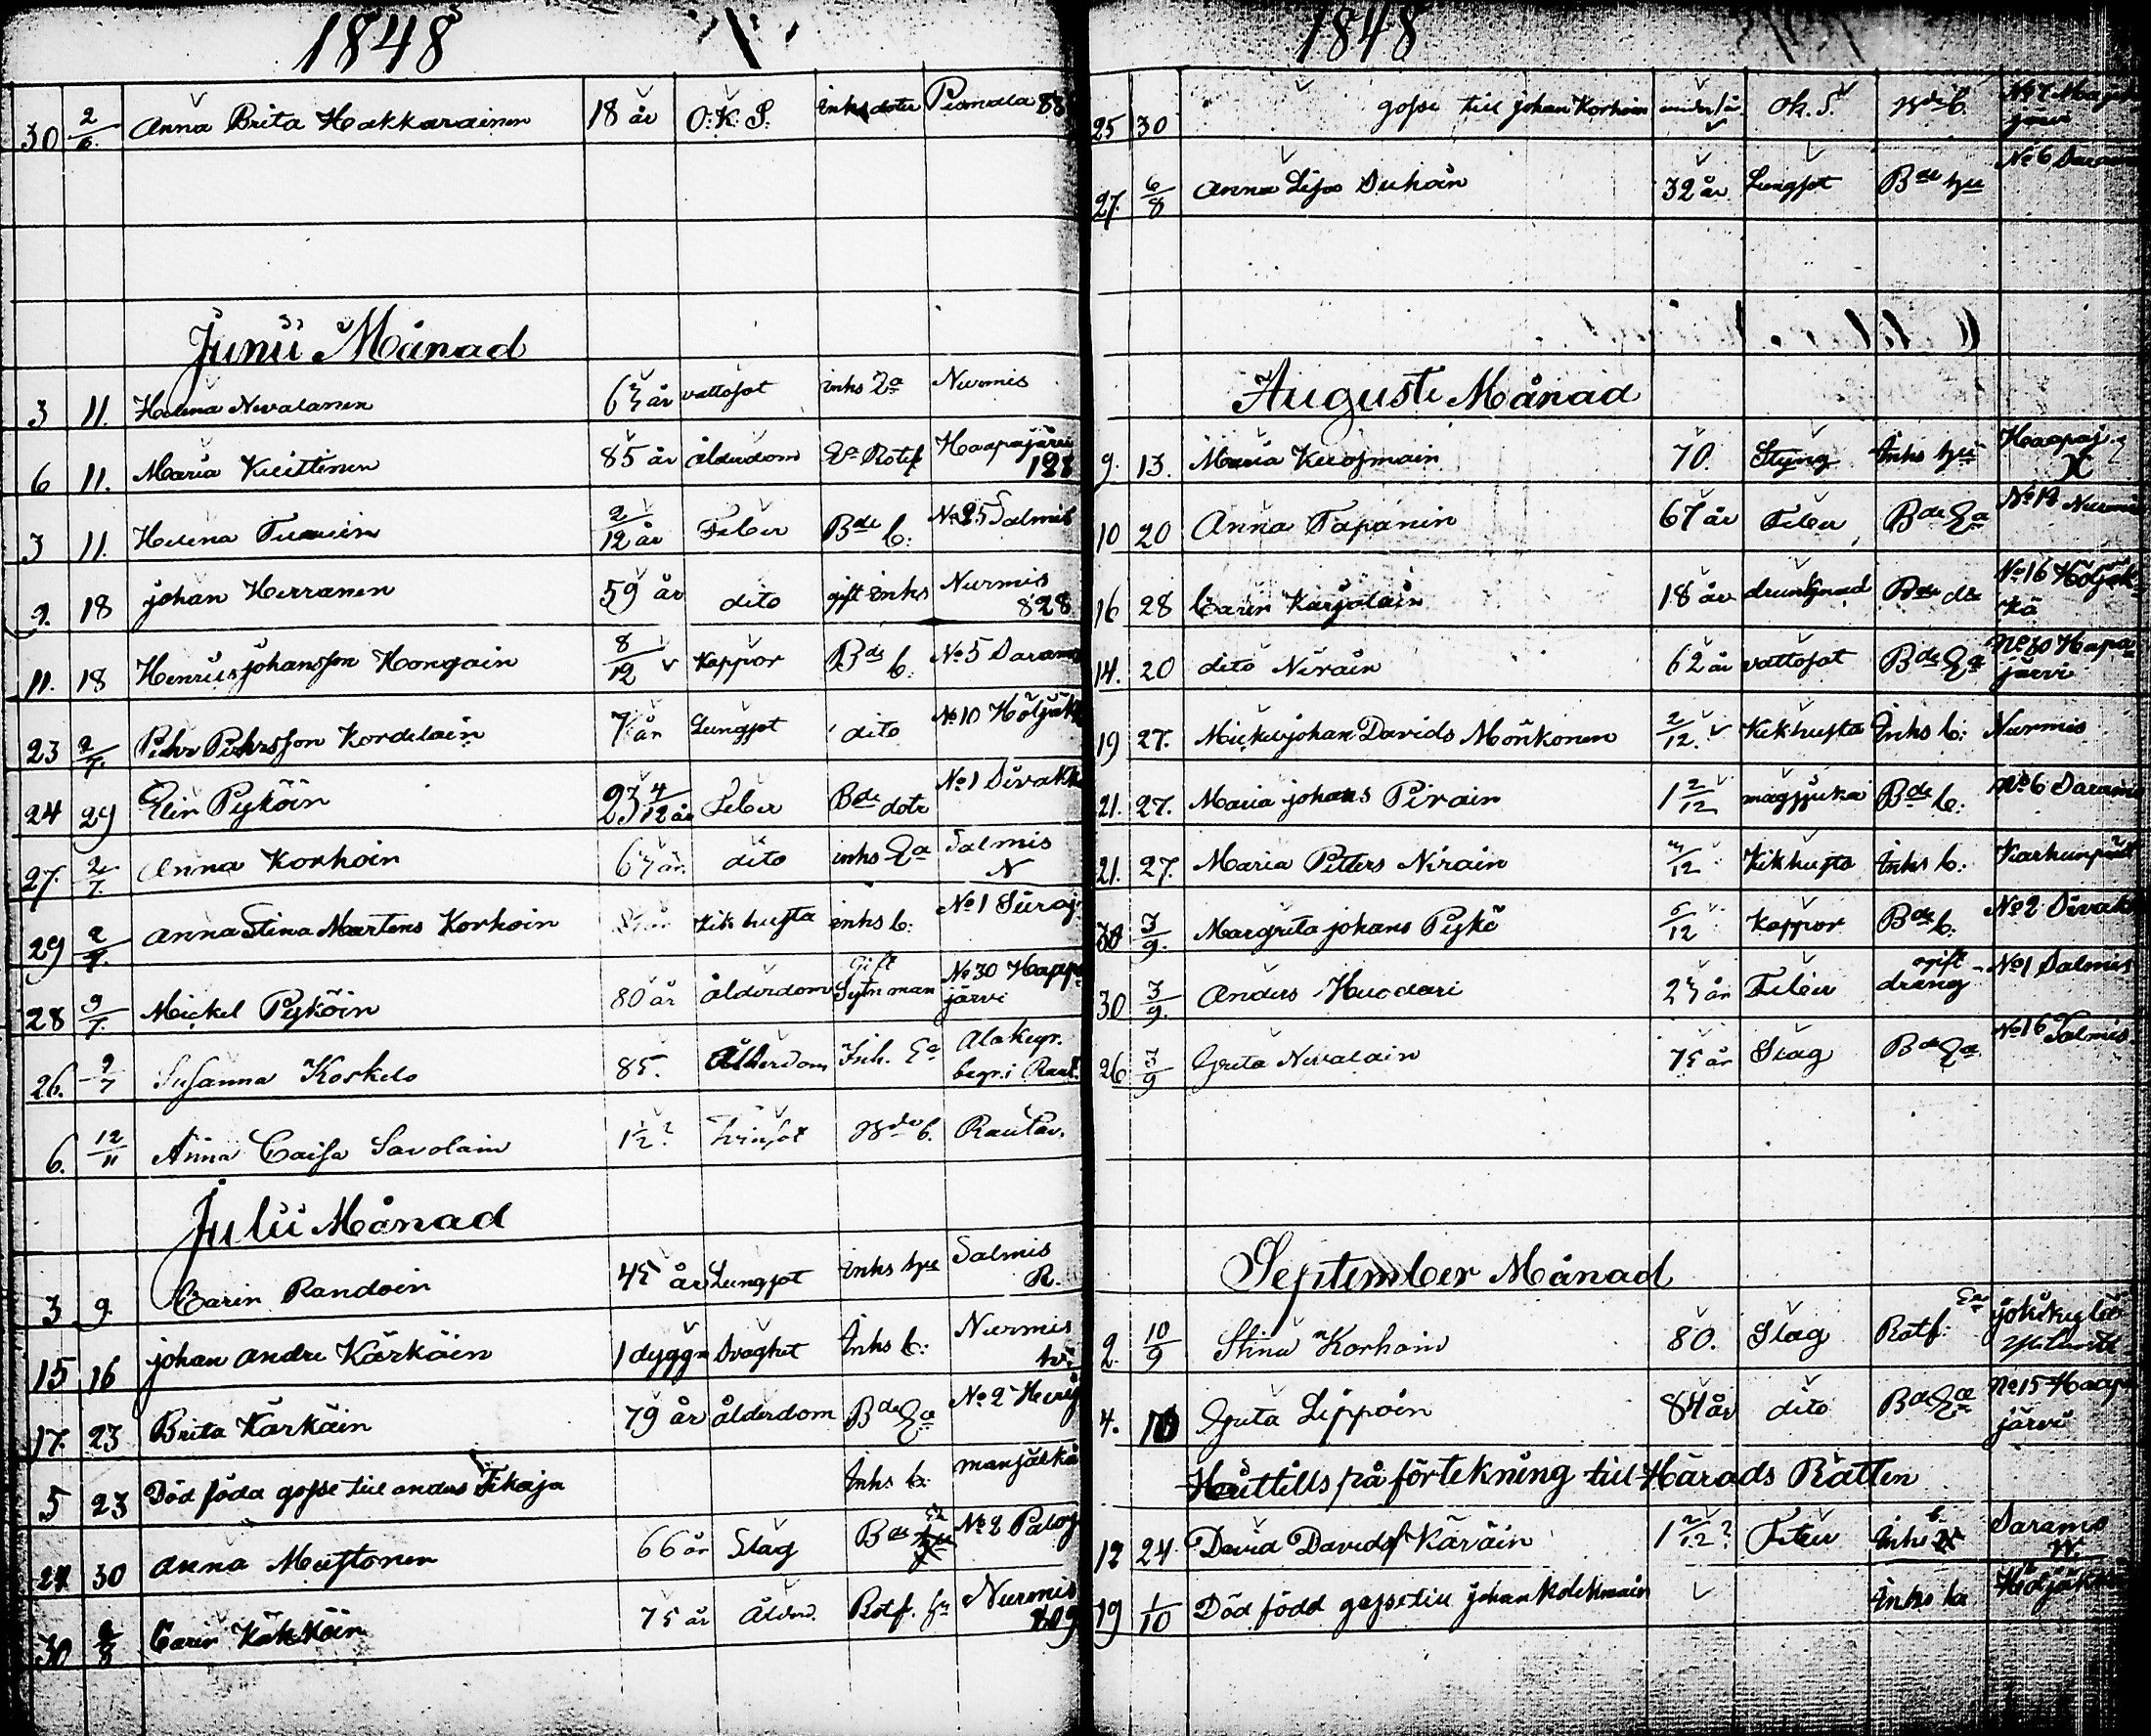 1848
30 2/6 Anna Brita Hakkarainen 18 år O.K.S. inhs dotr Piomala 88
Junii Månad
3 11. Helena Nevalainen 67 år vattosot inhs Ea Nurmis
6 11. Maria Kuittinen 85 år ålderdom Ea Rotef Haapajärvi 128
3 11. Helena 2/12 år Feber Bde b: No 25 Salmis
9. 18 johan Herranen 59 år dito gift inhs Nurmis 828
11. 18 Henrus johansson Hongain 8/12 Koppor Bde b: No 5 Saramo
23 2/7. Pehr Pehrsson Kordelain 7 år Lungsot dito No 10 Höljäk
24 29 Elin Pyköin 23 4/12 år Feber Bde dotr No 1 Sivakk
27. 2/7. Anna Korhoin 67 år. dito inhs Ea Salmis N
29 2/7. Anna Stina Martens Korhoin kikhusta inhs b: No 1
28 9/7. Mickel Pyköin 80 år ålderdom Gift Sytn man No 30 Haapa järvi
26. 9/7 Susanna Koskelo 85. Ålderdom Inh. Ea Alakyr. begr. i Raut.
6. 12/11 Anna Caisa Savolain 1 1/2? Bde b. Rautav.
Julii Månad
3 9. Carin Randoin 45 år Lungsot inhs hu Salmis R.
15 16 johan Andre Kärkäin 1 dyggn Svaghet Inhs b: Nurmis
17. 23 Brita Kärkäin 79 år ålderdom Bde Ea No 2
5 23 Död föda gosse till anders Tikaja Inhs b: manjälkä
24 30 Anna Mustonen 66 år Slag Bde Ea No 2 Paloj
30 6/8 Carin Käkköin 75 år Ålderd. Rotf. Nurmis 109
1848
25 30 gosse till johan Korhoin under 1 år Ok. S. Bde b. No 7 järvi
27. 6/8 Anna Lisa Suhoin 32 år Lungsot Bde hu No 6 Saramo
Augusti Månad
9. 13. Maria Kuosmain 70. Styng Inhs hu Haapaj. X
10 20 Anna Tapanin 67 år Feber Bde Ea No 12 Nurmis
16 28 Carin Karjalain 18 år drunknad Bde dr No 16 Höljäk kä
14. 20 dito Niräin 62 år vattosot Bde Ea No 30 Hapa järvi
19 27. Mickel johan Davids Mönkonen 2/12. Kikhusta Inhs b: Nurmis
21. 27. Maria johans Pirain 1 2/12 magsjuka Bde b: No 6 Saramo
21. 27. Maria Petters Nirain /12 Kikhusta Inhs b: Karhunpää
30 3/9. Margreta johans Pykö 5/12 Koppor Bde b. No 2 Sivak
30 3/9. Anders Huodari 27 år Feber ogift dräng No 1 Salmis
26 3/9 Greta Nevalain 75 år Slag Bde Ea No 16 Salmis.
September Månad
2. 10/9 Stina Korhoin 80. Slag Rotf: Ea jokikylä
4. 10 Greta Lippoin 84 år dito Bde Ea No 15 Haapa järvi
Hittills på förtekning till Härads Rätten
12 24 David Davidss Käräin 1 2/12? Feber Inhs b Saramo W.
19 1/10 Död född gosse till johan Kolehmain Inhs b Höljäkä